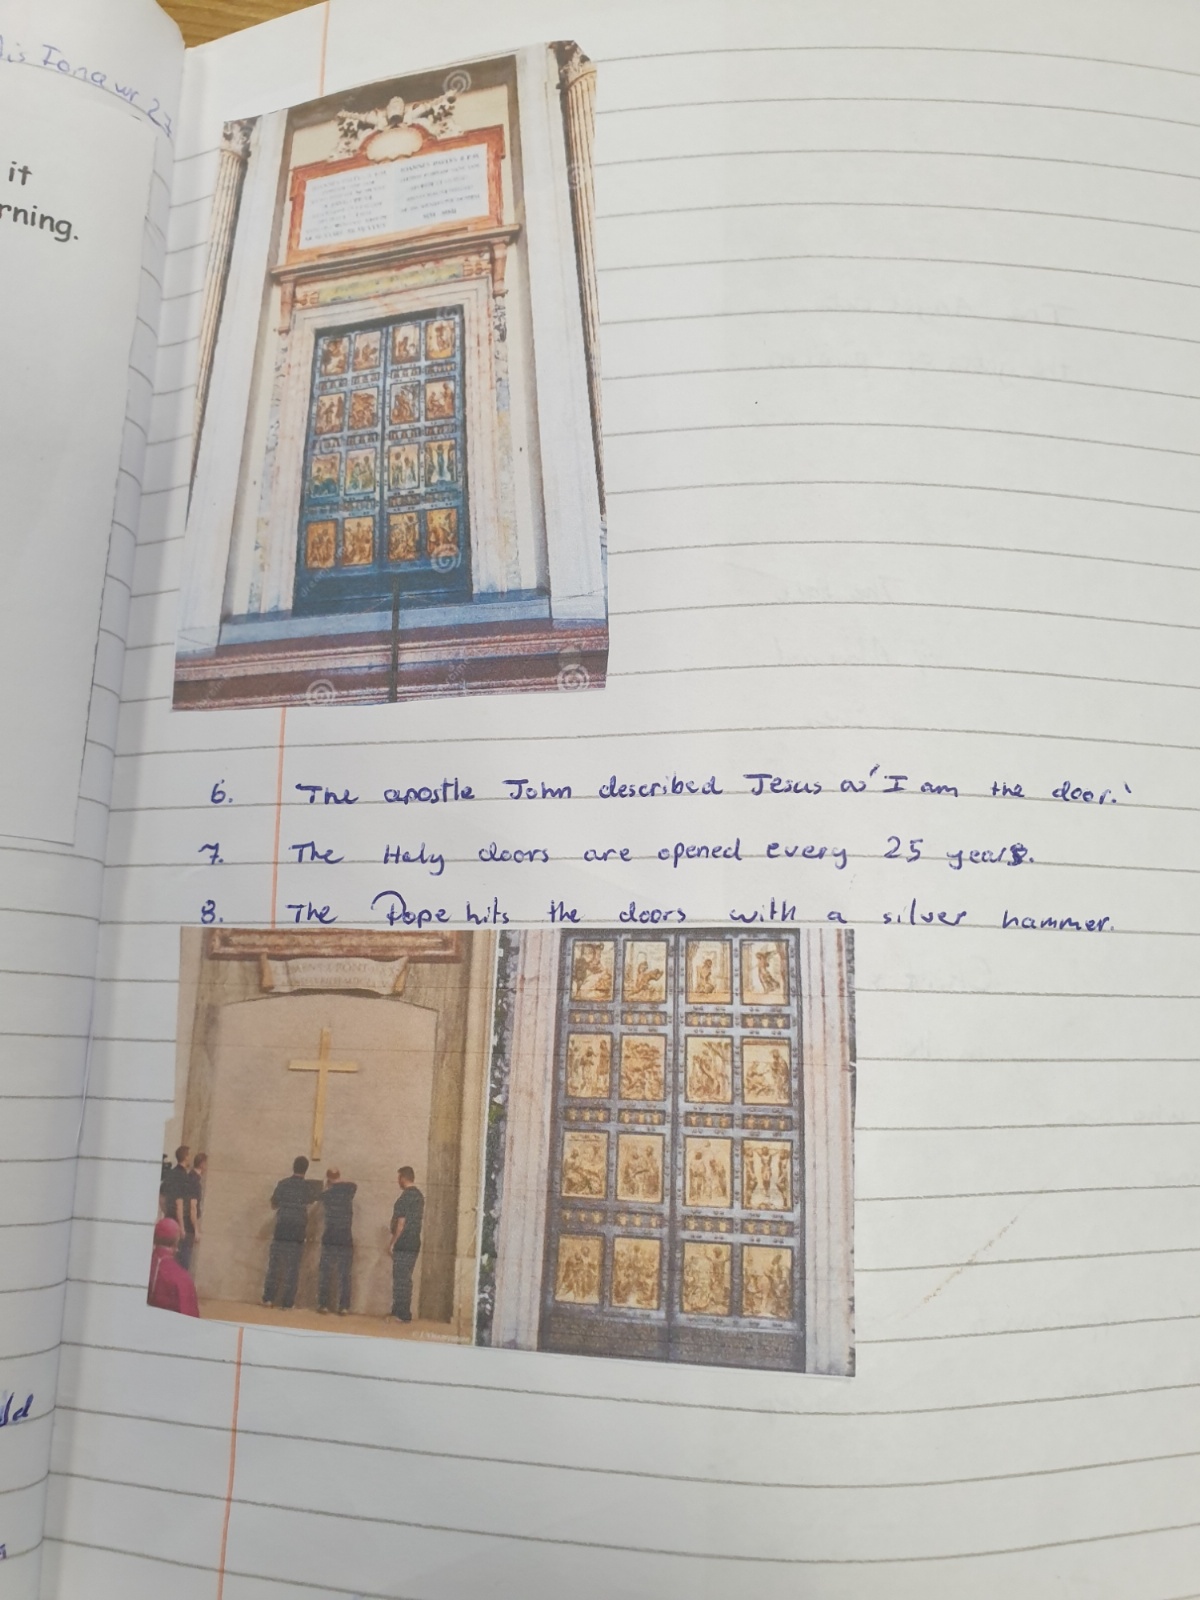 Mis Ionawr 27
it
rning.
6. The apostle John described Jesus as 'I am the door.'
7. The Holy doors are opened every 25 years.
8. The Pope hits the doors with a silver hammer.
ld